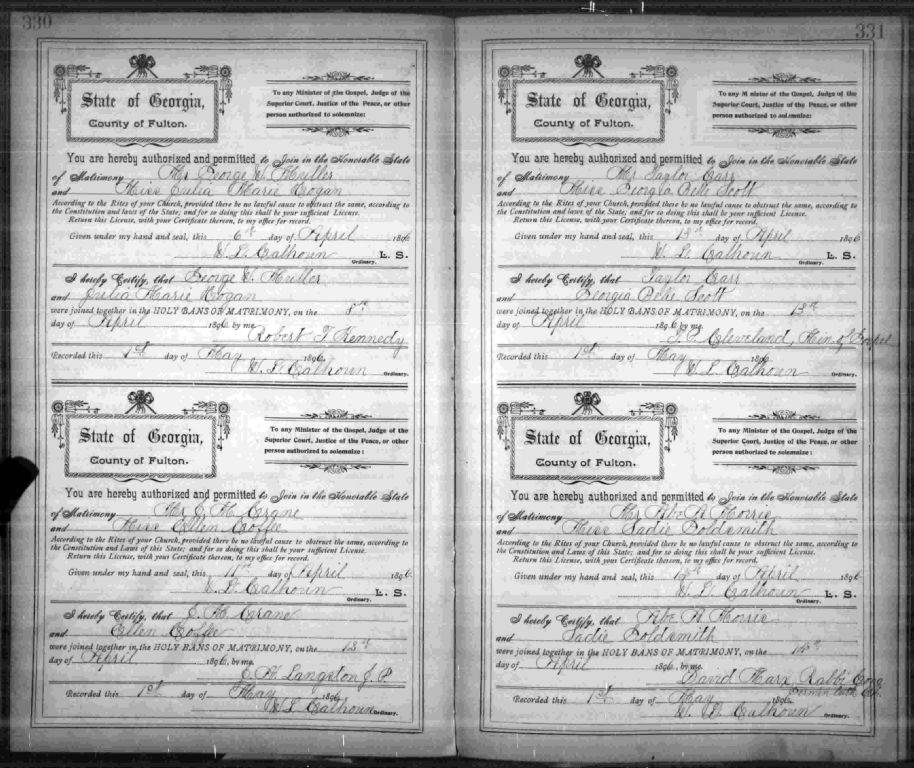 330
State of Georgia,
County of Fulton.
To any Minister of the Gospel, Judge of the
Superior Court, Justice of the Peace, or other
person authorized to solemnize:
You are hereby authorized and permitted to Join in the Honorable State
of Matrimony Mr George S. Muller
and Miss Julia Marie Hogan
According to the Rites of your Church, provided there be no lawful cause to obstruct the same, according to
the Constitution and laws of the State; and for so doing this shall be your sufficient License.
Return this License, with your Certificate thereon, to my office for record.
Given under my hand and seal, this 6th day of April 1896
W. L. Calhoun L. S.
Ordinary.
I hereby Certify, that George S. Muller
and Julia Marie Hogan
were joined together in the HOLY BANS OF MATRIMONY, on the 8th
day of April 1896 by me,
Robert F Kennedy
Recorded this 1st day of May 1896
W. L. Calhoun Ordinary.
State of Georgia,
County of Fulton.
To any Minister of the Gospel, Judge of the
Superior Court, Justice of the Peace, or other
person authorized to solemnize:
You are hereby authorized and permitted to Join in the Honorable State
of Matrimony Mr J. H. Crane
and Miss Ellen
According to the Rites of your Church, provided there be no lawful cause to obstruct the same, according to
the Constitution and Laws of this State; and for so doing this shall be your sufficient License.
Return this License, with your Certificate thereon, to my office for record.
Given under my hand and seal, this 11th day of April 1896
W. L. Calhoun L. S.
Ordinary.
I hereby Certify, that J. H. Crane
and Ellen
were joined together in the HOLY BANS OF MATRIMONY, on the 13th
day of April 1896, by me,
Langston J. P.
Recorded this 1st day of May 1896
W. L. Calhoun Ordinary.
331
State of Georgia,
County of Fulton.
To any Minister of the Gospel, Judge of the
Superior Court, Justice of the Peace, or other
person authorized to solemnize:
You are hereby authorized and permitted to Join in the Honorable State
of Matrimony Mr Taylor Carr
and Miss Georgia Scott
According to the Rites of your Church, provided there be no lawful cause to obstruct the same, according to
the Constitution and laws of the State; and for so doing this shall be your sufficient License.
Return this License, with your Certificate thereon, to my office for record.
Given under my hand and seal, this 13th day of April 1896
W. L. Calhoun L. S.
Ordinary.
I hereby Certify, that Taylor Carr
and Georgia Scott
were joined together in the HOLY BANS OF MATRIMONY, on the 13th
day of April 1896 by me,
Cleveland, Min. of Gospel
Recorded this 1st day of May 1896
W. L. Calhoun Ordinary.
State of Georgia,
County of Fulton.
To any Minister of the Gospel, Judge of the
Superior Court, Justice of the Peace, or other
person authorized to solemnize:
You are hereby authorized and permitted to Join in the Honorable State
of Matrimony Mr Abe A Morris
and Miss Sadie Goldsmith
According to the Rites of your Church, provided there be no lawful cause to obstruct the same, according to
the Constitution and laws of the State; and for so doing this shall be your sufficient License.
Return this License, with your Certificate thereon, to my office for record.
Given under my hand and seal, this day of April 1896
W. L. Calhoun L. S.
Ordinary.
I hereby Certify, that Abe A Morris
and Sadie Goldsmith
were joined together in the HOLY BANS OF MATRIMONY, on the
day of April 1896, by me,
David Marx, Rabbi Cong
Recorded this 1st day of May 1896
W. L. Calhoun Ordinary.